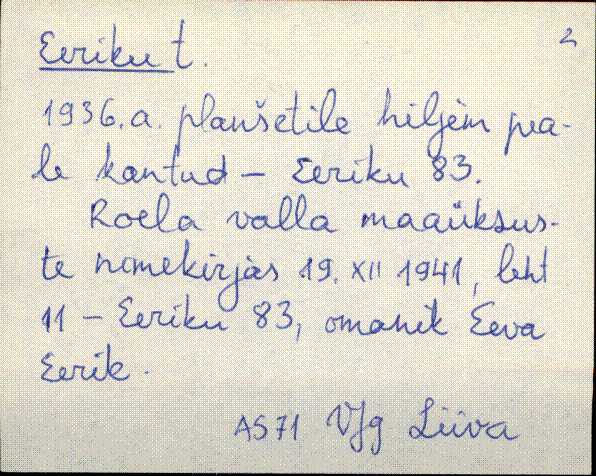 2
Eeriku t.
1936.a. planšetile hiljem pea-
le kantud – Eeriku 83.
Roela valla maaüksus-
te nimekirjas 19. XII 1941, leht
11 – Eeriku 83, omanik Eeva
Eerik.
AS71 VJg Liiva